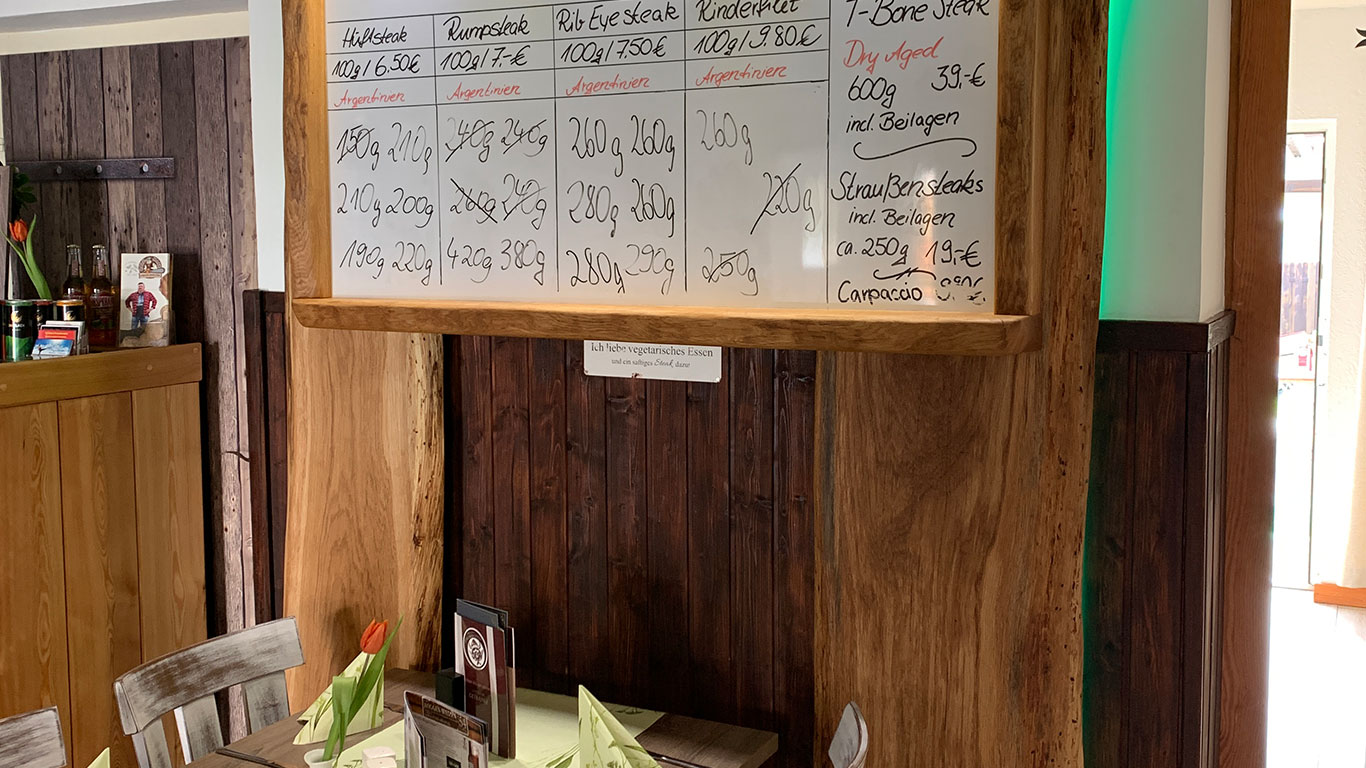 Hüftsteak
100g/6.50€
Argentinien
150g 210g
210g 200g
190g 220g
Rumpsteak
100g/7,-€
Argentinien
240g 240g
260g 240g
420g 380g
Rib Eye steak
100g/7,50€
Argentinien
260g 260g
280g 260g
280g 290g
Rinderfilet
100g/9.80€
Argentinien
260g
220g
250g
T-Bone Steak
Dry Aged
600g 39,-€
incl. Beilagen
Straußensteaks
incl. Beilagen
ca. 250g 19,-€
Carpaccio
Ich liebe vegetarisches Essen
und ein saftiges Steak dazu